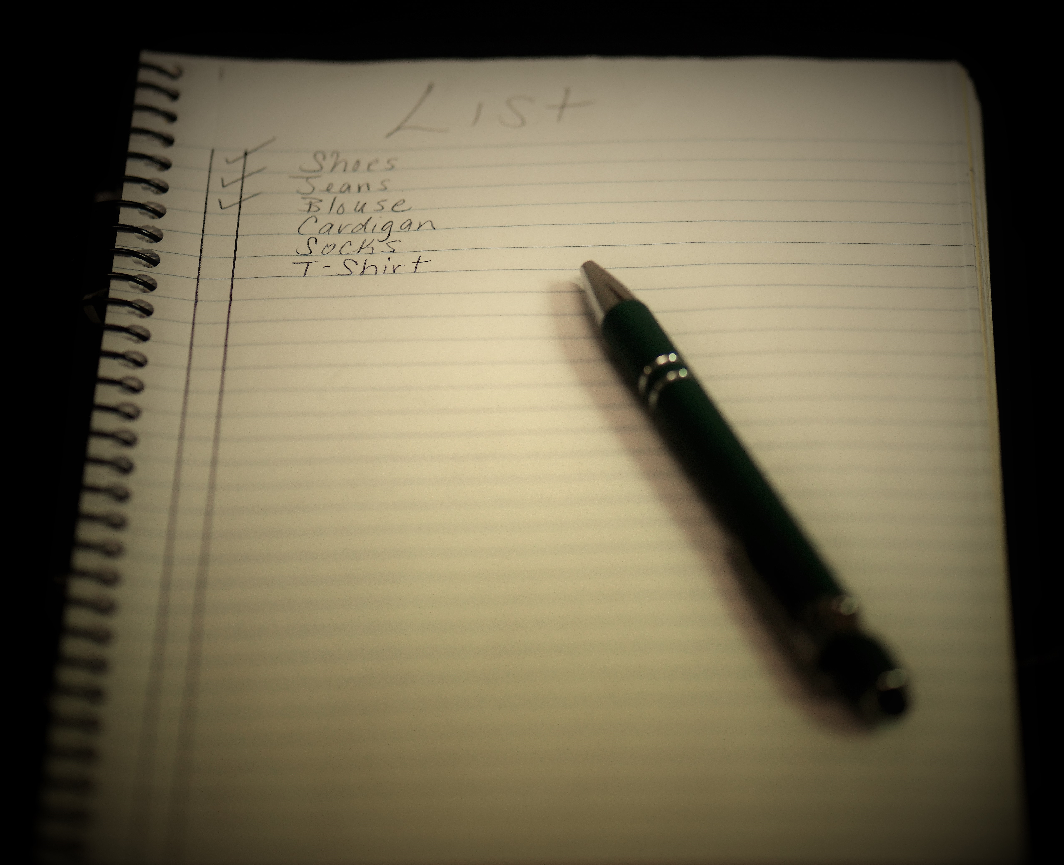 List
✓ Shoes
✓ Jeans
✓ Blouse
Cardigan
Socks
T-Shirt